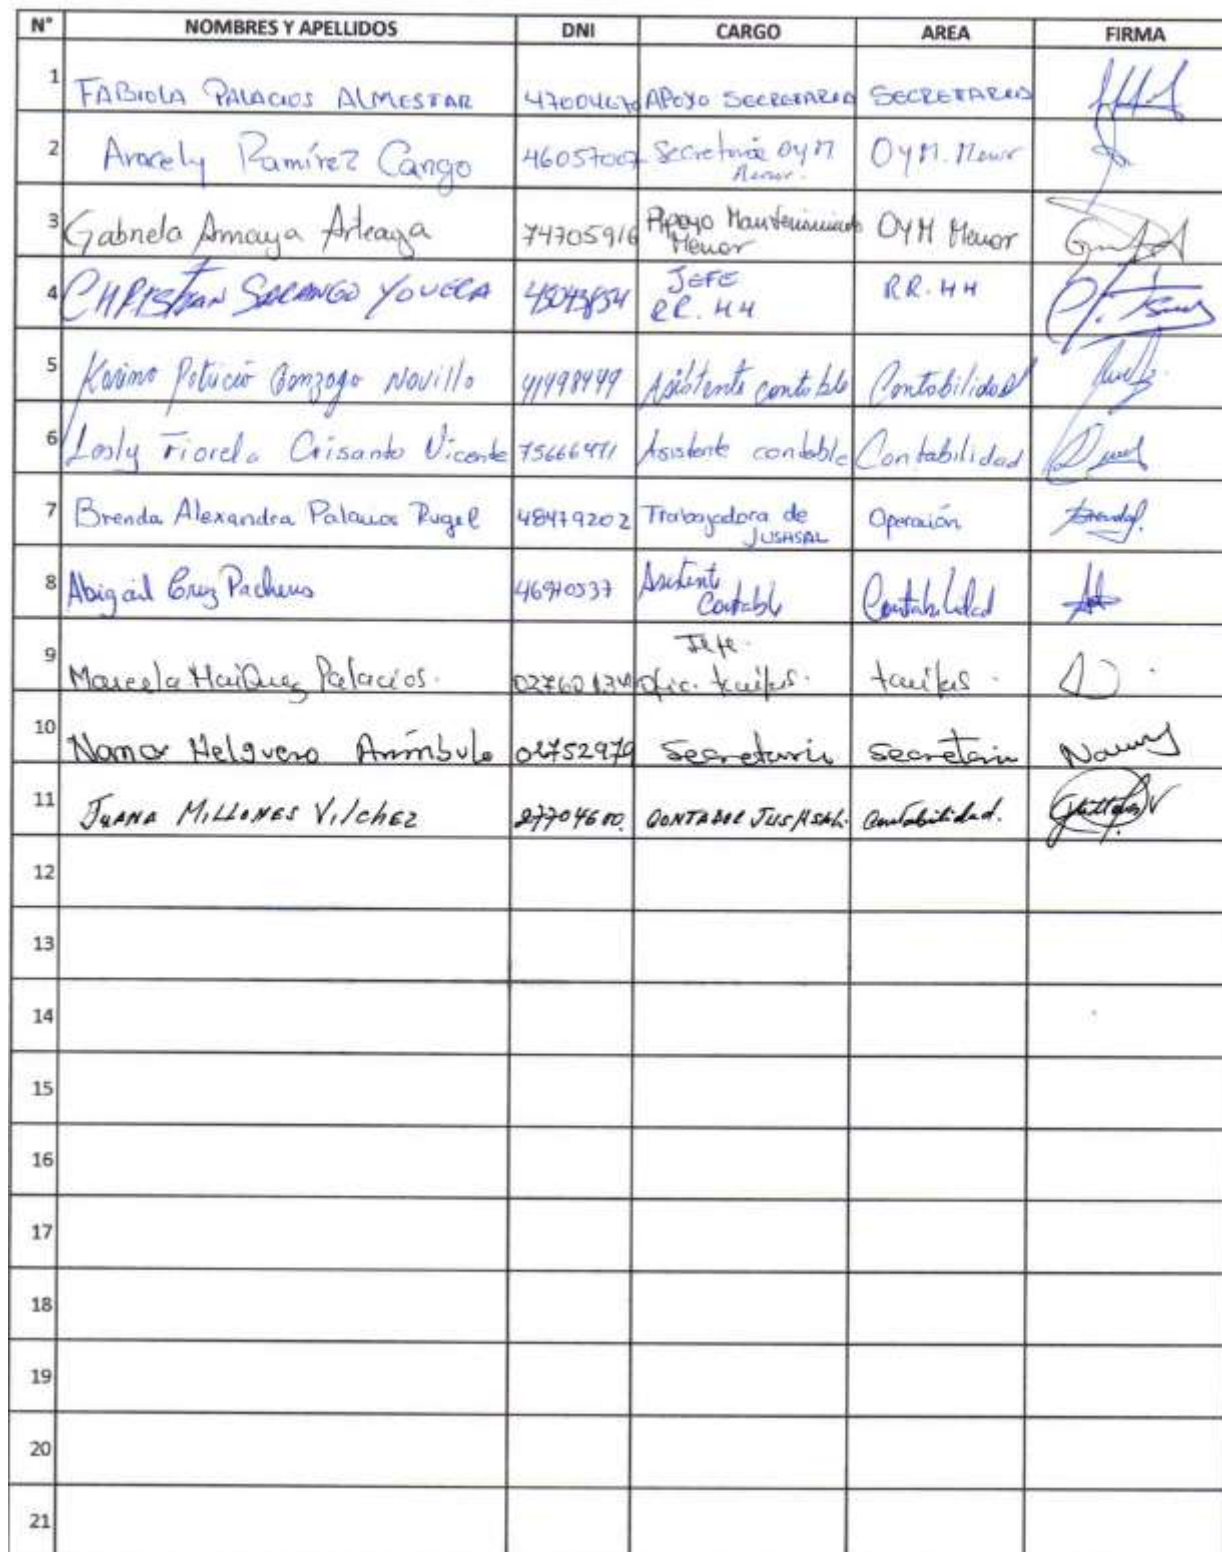 N° NOMBRES Y APELLIDOS DNI CARGO AREA FIRMA
1 FABIOLA PALACIOS ALMESTAR 47004670 APOYO SECRETARIA SECRETARIA
2 Aracely Ramírez Cango 46057007 Secretaria OyM Menor. OyM. Menor
3 Gabriela Amaya Arteaga 74705916 Apoyo Mantenimiento Menor OYM Menor
4 CHRISTIAN SARANGO YOVERA JEFE RR. HH RR. HH
5 Gonzaga Novillo Asistente contable Contabilidad
6 Lesly Fiorela Crisanto Vicente 75666471 Asistente contable Contabilidad
7 Brenda Alexandra Palacios Rugel 48479202 Trabajadora de JUSHSAL Operación
8 Abigail Cruz Pacheco 46970537 Asistente Contable Contabilidad
9 Marcela Palacios. Jefe. Ofic. tarifas. tarifas.
10 Secretaria Secretaria
11 JUANA MILLONES VILCHEZ 27704600. CONTADOR JUSHSAL. Contabilidad.
12
13
14
15
16
17
18
19
20
21